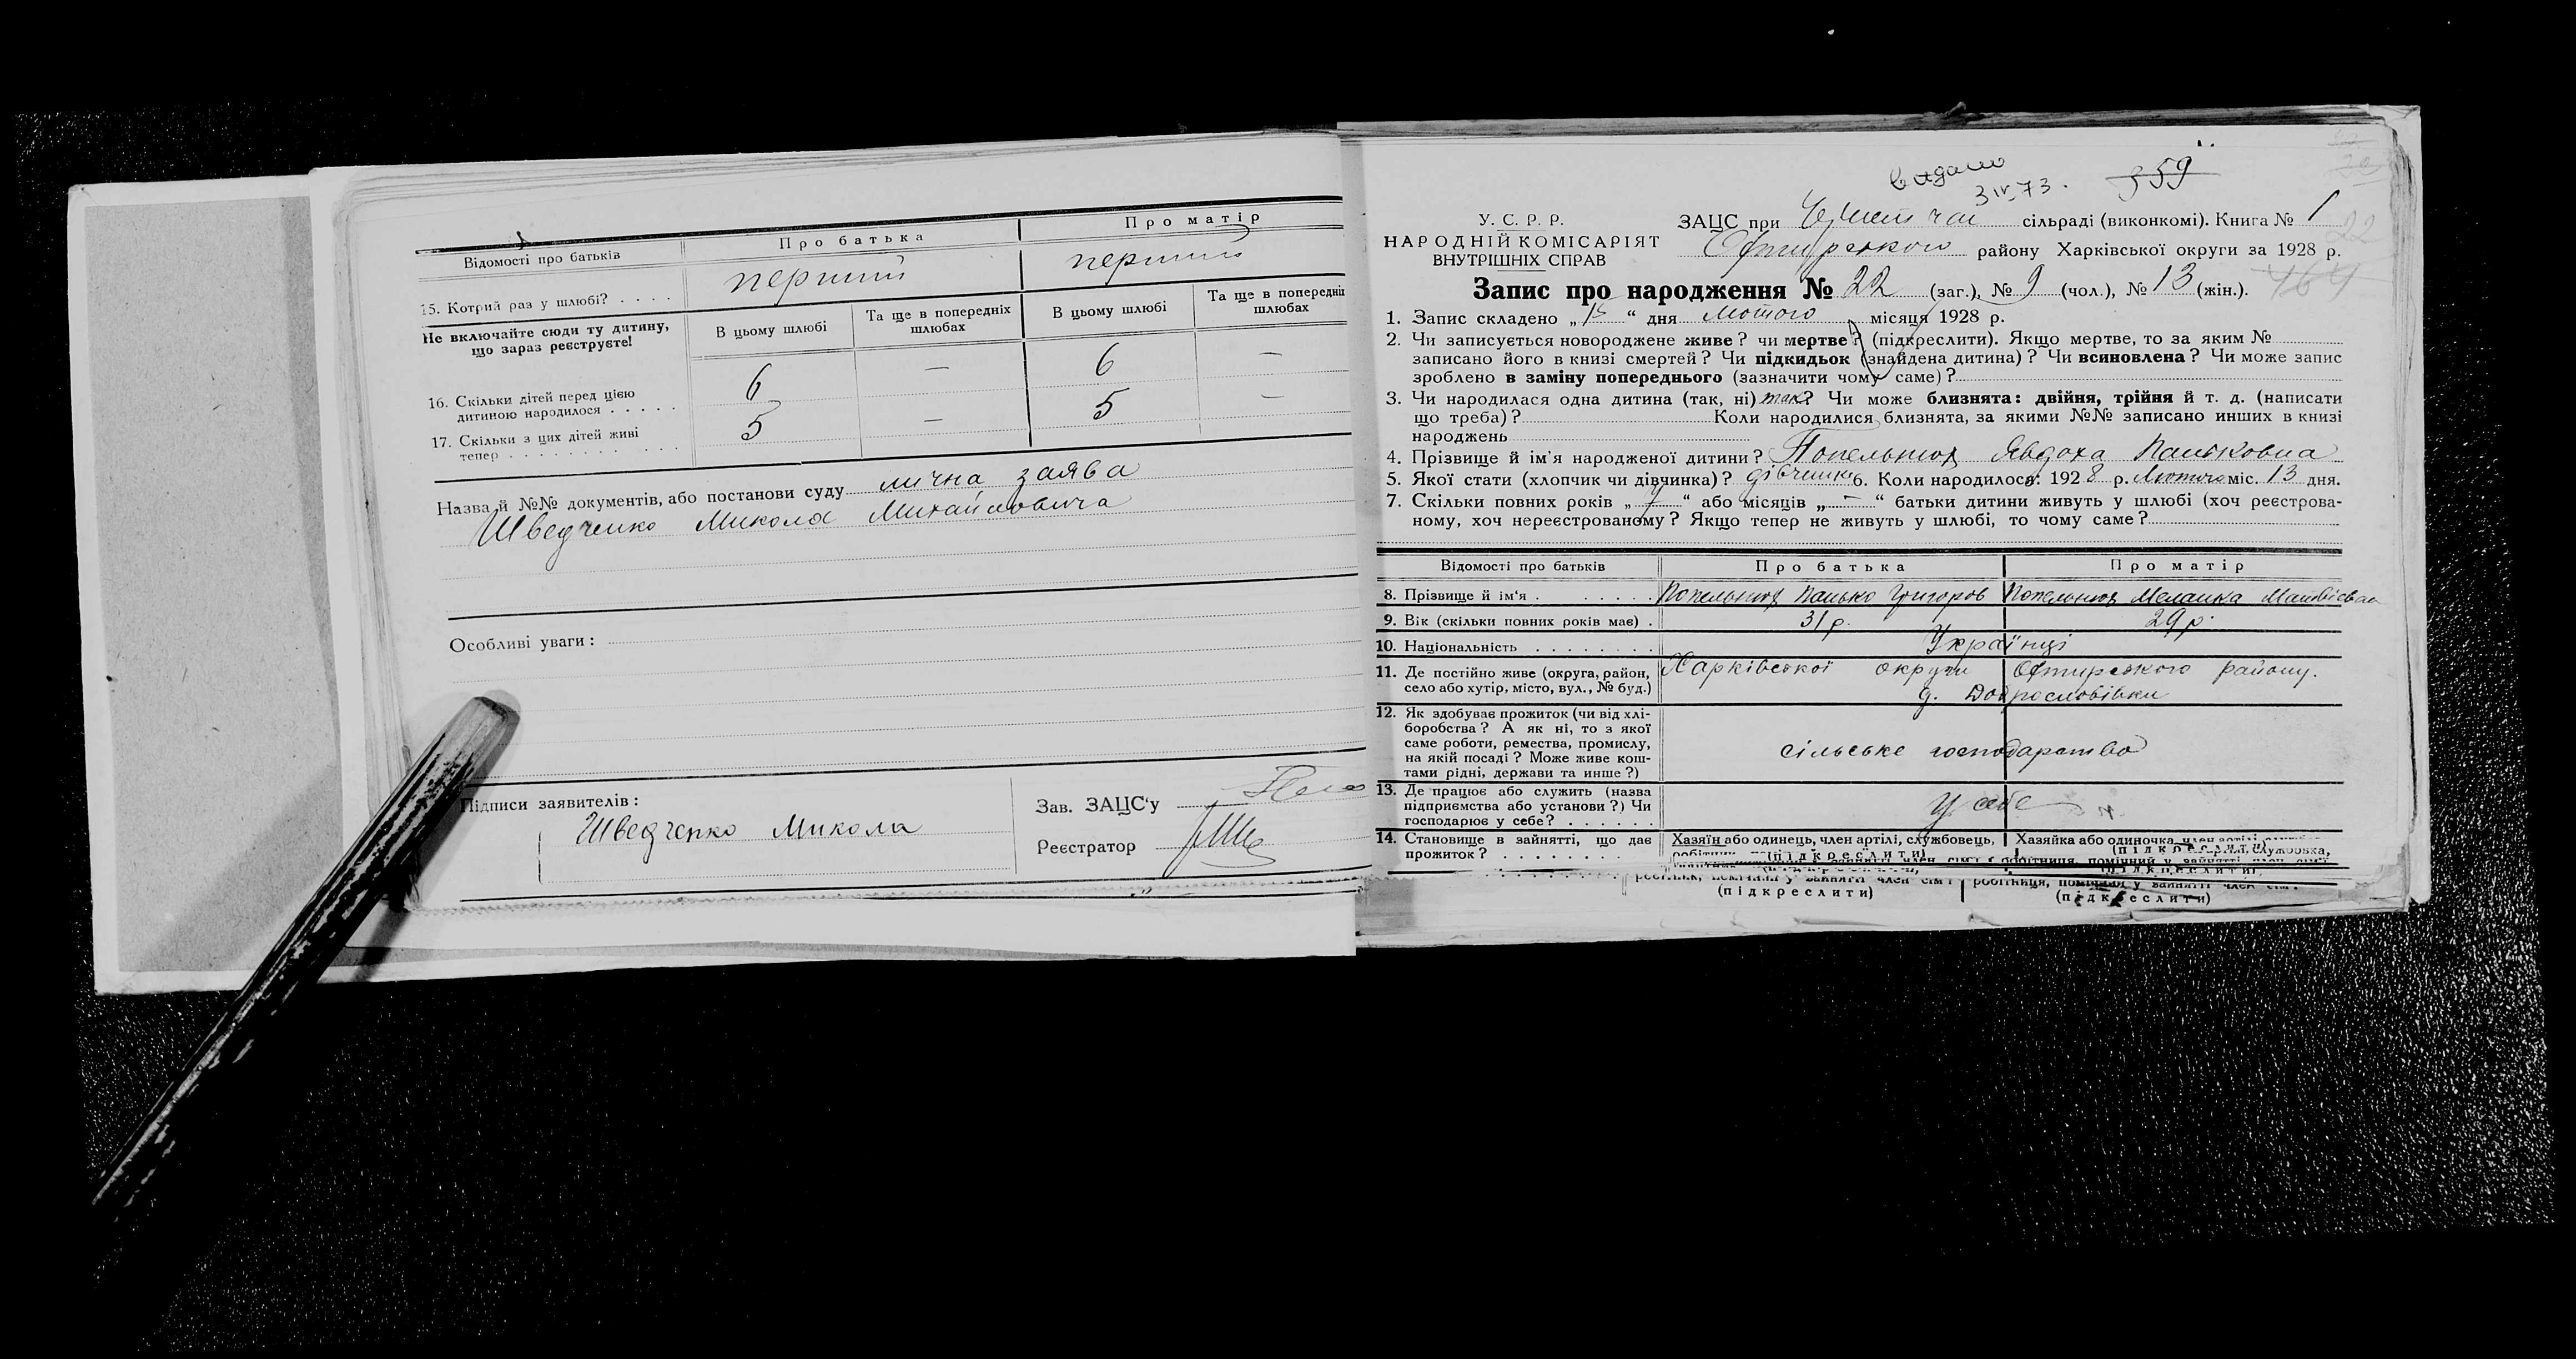 Відомості про батьків
Про батька
Про матір
15. Котрий раз у шлюбі? . . . .
перший
перший
Не включайте сюди ту дитину, що зараз реєструєте!
В цьому шлюбі
Та ще в попередніх шлюбах
В цьому шлюбі
Та ще в попередніх шлюбах
16. Скільки дітей перед цією
дитиною народилося . . . . .
6 — 6 —
17. Скільки з цих дітей живі
тепер . . . . . . . . . . .
5 — 5 —
Назва й №№ документів, або постанови суду лична заява
Шведченко Микола Михайловича
Особливі уваги:
Підписи заявителів:
Шведченко Микола
Зав. ЗАЦС'у
Реєстратор
видано
3 IV 73.
359
У. С. Р. Р.
НАРОДНІЙ КОМІСАРІЯТ
ВНУТРІШНІХ СПРАВ
ЗАЦС при сільраді (виконкомі). Книга № 1
району Харківської округи за 1928 р.
22
464
Запис про народження № 22 (заг.), № 9 (чол.), № 13 (жін.).
1. Запис складено „15“ дня лютого місяця 1928 р.
2. Чи записується новороджене живе? чи мертве? (підкреслити). Якщо мертве, то за яким №
записано його в книзі смертей? Чи підкидьок (знайдена дитина)? Чи всиновлена? Чи може запис
зроблено в заміну попереднього (зазначити чому саме)?
3. Чи народилася одна дитина (так, ні) так? Чи може близнята: двійня, трійня й т. д. (написати
що треба)? Коли народилися близнята, за якими №№ записано инших в книзі
народжень
4. Прізвище й ім'я народженої дитини? Попельнюх Явдоха Паньковна
5. Якої стати (хлопчик чи дівчинка)? дівчинка 6. Коли народилося: 1928 р. Лютого міс. 13 дня.
7. Скільки повних років „7“ або місяців „—“ батьки дитини живуть у шлюбі (хоч реєстрова-
ному, хоч нереєстрованому? Якщо тепер не живуть у шлюбі, то чому саме?
Відомості про батьків
Про батька
Про матір
8. Прізвище й ім'я . . . . . . Попельнюх Панько Григоров Попельнюх Меланка
9. Вік (скільки повних років має) . 31 р. 29 р.
10. Національність . . . . . . . . Українці
11. Де постійно живе (округа, район,
село або хутір, місто, вул., № буд.)
Харківської округи Охтирського району.
д. Доброславівки
12. Як здобуває прожиток (чи від хлі-
боробства? А як ні, то з якої
саме роботи, ремества, промислу,
на якій посаді? Може живе кош-
тами рідні, держави та инше?)
сільське господарство
13. Де працює або служить (назва
підприємства або установи?) Чи
господарює у себе? . . . . . .
У себе
14. Становище в зайнятті, що дає
прожиток? . . . . . . . .
Хазяїн або одинець, член артілі, службовець,
Хазяйка або одиночка
(підкреслити)
(підкреслити)